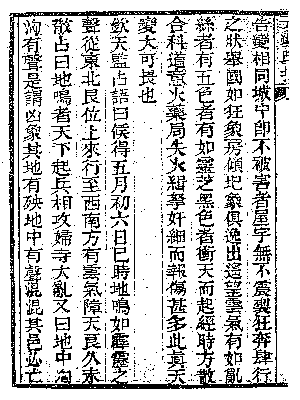 告變相同城中即不被害者屋宇無不震裂狂奔肆行
之狀舉國如狂象房傾圮象俱逸出遥望雲氣有如亂
絲者有五色者有如靈芝黑色者衝天而起經時方散
合科道意火藥局失火緝拏奸細而報傷甚多此真天
變大可畏也
欽天監占語曰候得五月初六日巳時地鳴如霹靂之
聲從東北艮位上來行至西南方有雲氣障天良久未
散占曰地鳴者天下起兵相攻婦寺大亂又曰地中洶
洶有聲是謂凶象其地有殃地中有聲混混其邑必亡